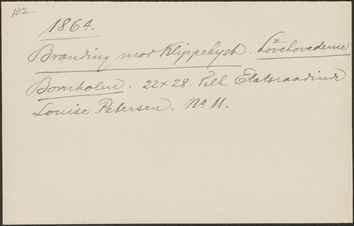 102
1864.
Brænding mod Klippekyst. Løvehovederne
Bornholm. 22 x 28. Bell. Etatsraadinde
Louise Petersen. No 11.